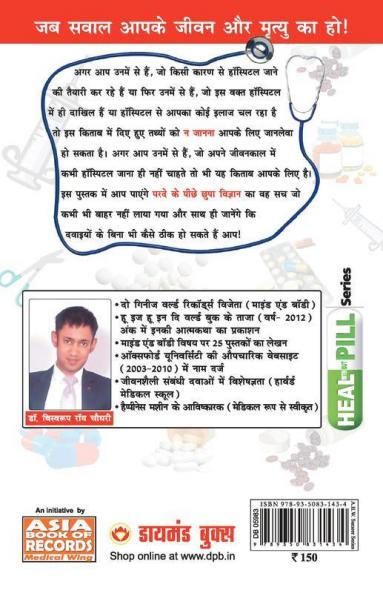 जब सवाल आपके जीवन और मृत्यु का हो!
अगर आप उनमें से हैं, जो किसी कारण से हॉस्पिटल जाने
की तैयारी कर रहे हैं या फिर उनमें से हैं, जो इस वक्त हॉस्पिटल
में ही दाखिल हैं या हॉस्पिटल से आपका कोई इलाज चल रहा है
तो इस किताब में दिए हुए तथ्यों को न जानना आपके लिए जानलेवा
हो सकता है। अगर आप उनमें से हैं, जो अपने जीवनकाल में
कभी हॉस्पिटल जाना ही नहीं चाहते तो भी यह किताब आपके लिए है।
इस पुस्तक में आप पाएंगे परदे के पीछे छुपा विज्ञान का वह सच जो
कभी भी बाहर नहीं लाया गया और साथ ही जानेंगे कि
दवाइयों के बिना भी कैसे ठीक हो सकते हैं आप!
• दो गिनीज वर्ल्ड रिकॉर्ड्स विजेता (माइंड एंड बॉडी)
• हू इज हू इन दि वर्ल्ड बुक के ताजा (वर्ष- 2012)
अंक में इनकी आत्मकथा का प्रकाशन
• माइंड एंड बॉडी विषय पर 25 पुस्तकों का लेखन
• ऑक्सफोर्ड यूनिवर्सिटी की औपचारिक वेबसाइट
(2003-2010) में नाम दर्ज
• जीवनशैली संबंधी दवाओं में विशेषज्ञता (हार्वर्ड
मेडिकल स्कूल)
• हैप्पीनेस मशीन के आविष्कारक (मेडिकल रूप से स्वीकृत)
डॉ. बिस्वरूप रॉय चौधरी
HEAL PILL Series
An initiative by
ASIA
BOOK OF
RECORDS
Medical Wing
डायमंड बुक्स
Shop online at www.dpb.in
DB 05983
ISBN 978-93-5083-143-4
9 789350 831434
₹ 150